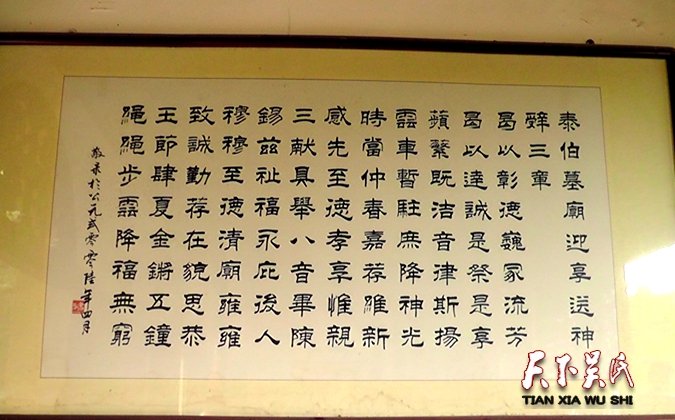 泰伯墓廟迎享送神
辤三章
曷以彰德巍冢流芳
曷以達誠是祭是享
蘋蘩既洁音律斯揚
雲車暫駐庶降神光
時當仲春嘉荐維新
感先至德孝享惟親
三献具舉八音畢陳
錫兹祉福永庇後人
穆穆至德清廟雍雍
致誠勤荐在貌思恭
王節肆夏金鏘五鐘
繩繩步雲降福無窮
敬录於公元貳零零陸年四月
天下吴氏
TIAN XIA WU SHI